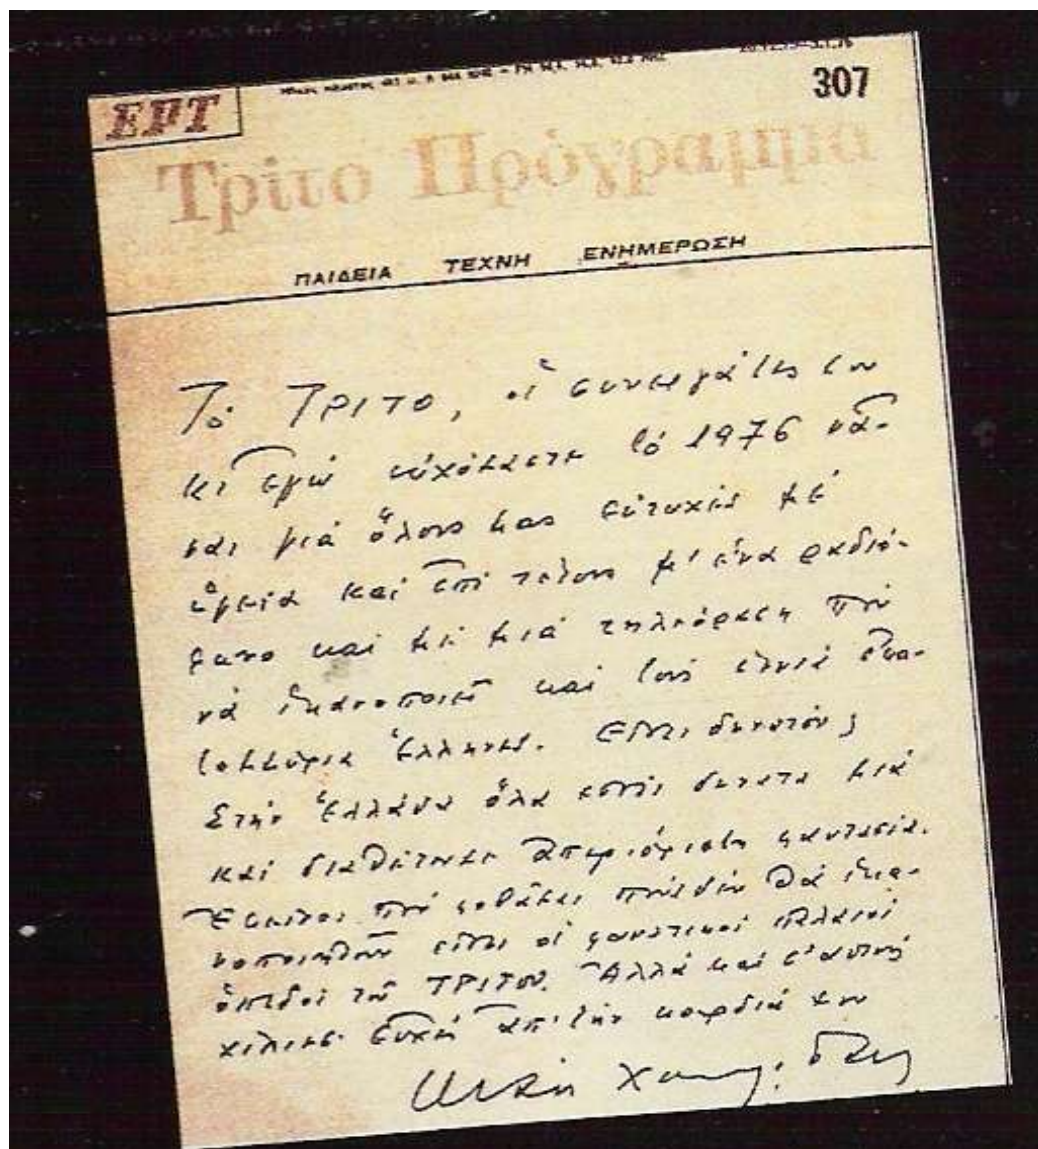 307
ΕΡΤ
Τρίτο Πρόγραμμα
ΠΑΙΔΕΙΑ ΤΕΧΝΗ ΕΝΗΜΕΡΩΣΗ
Τὸ ΤΡΙΤΟ, οἱ συνεργάτες του
κι ἐγὼ εὐχόμαστε τὸ 1976 νἆ-
ναι γιὰ ὅλους μας εὐτυχὲς μὲ
ὑγεία καὶ ἐπὶ τέλους μ' ἕνα ραδιό-
φωνο καὶ μὲ μιὰ τηλεόραση ποὺ
νὰ ἱκανοποιεῖ καὶ τοὺς ἐννιὰ ἑκα-
τομμύρια Ἕλληνες. Εἶναι δυνατόν;
Στὴν Ἑλλάδα ὅλα εἶναι δυνατὰ μιὰ
καὶ διαθέτουμε ἀπεριόριστη φαντασία.
Ἐκεῖνοι ποὺ φοβᾶμαι πὼς δὲν θὰ ἱκα-
νοποιηθοῦν εἶναι οἱ φανατικοὶ παλαιοὶ
ὀπαδοὶ τοῦ ΤΡΙΤΟΥ. Ἀλλὰ καὶ σ' αὐτοὺς
χίλιες εὐχὲς ἀπ' τὴν καρδιά μου
Μάνος Χατζιδάκις